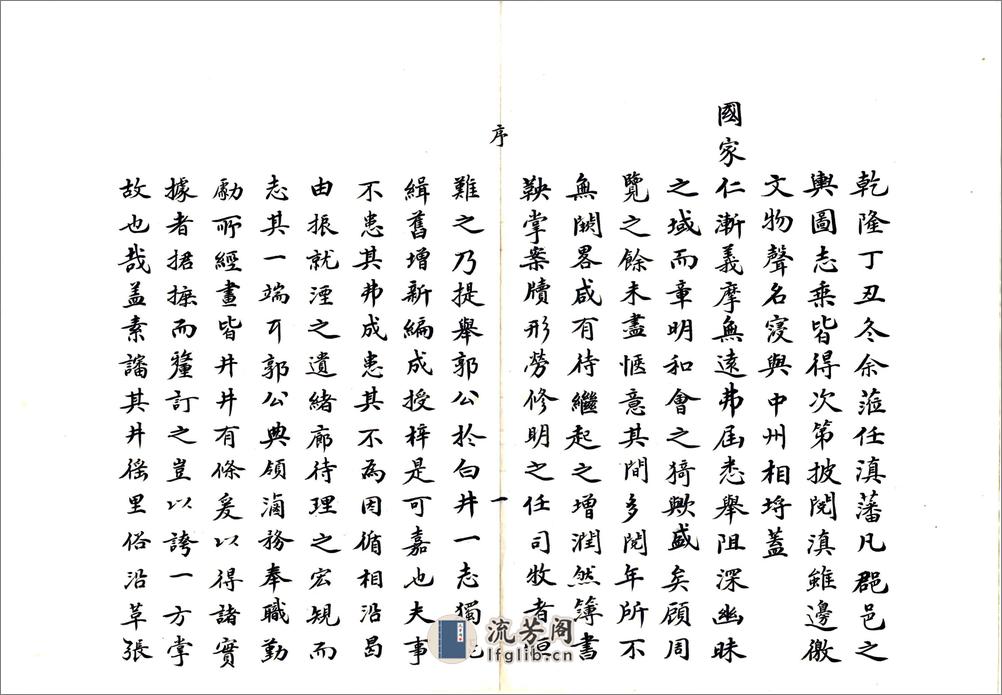 乾隆丁丑冬余蒞任滇藩凡郡邑之
輿圖志乘皆得次第披閱滇雖邊徼
文物聲名寖與中州相埒蓋
國家仁漸義摩無遠弗屆悉舉阻深幽昧
之域而章明和會之猗歟盛矣顧周
覽之餘未盡愜意其間多閱年所不
無闕畧咸有待繼起之增潤然簿書
鞅掌案牘形勞修明之任司牧者恒
序
一
難之乃提舉郭公於白井一志獨
緝舊增新編成授梓是可嘉也夫事
不患其弗成患其不為因循相沿曷
由振就湮之遺緒廓待理之宏規而
志其一端耳郭公典領滷務奉職勤
勵所經畫皆井井有條爰以得諸實
據者捃摭而釐訂之豈以誇一方掌
故也哉蓋素諳其井徭里俗沿革張
流芳阁
lfglib.cn